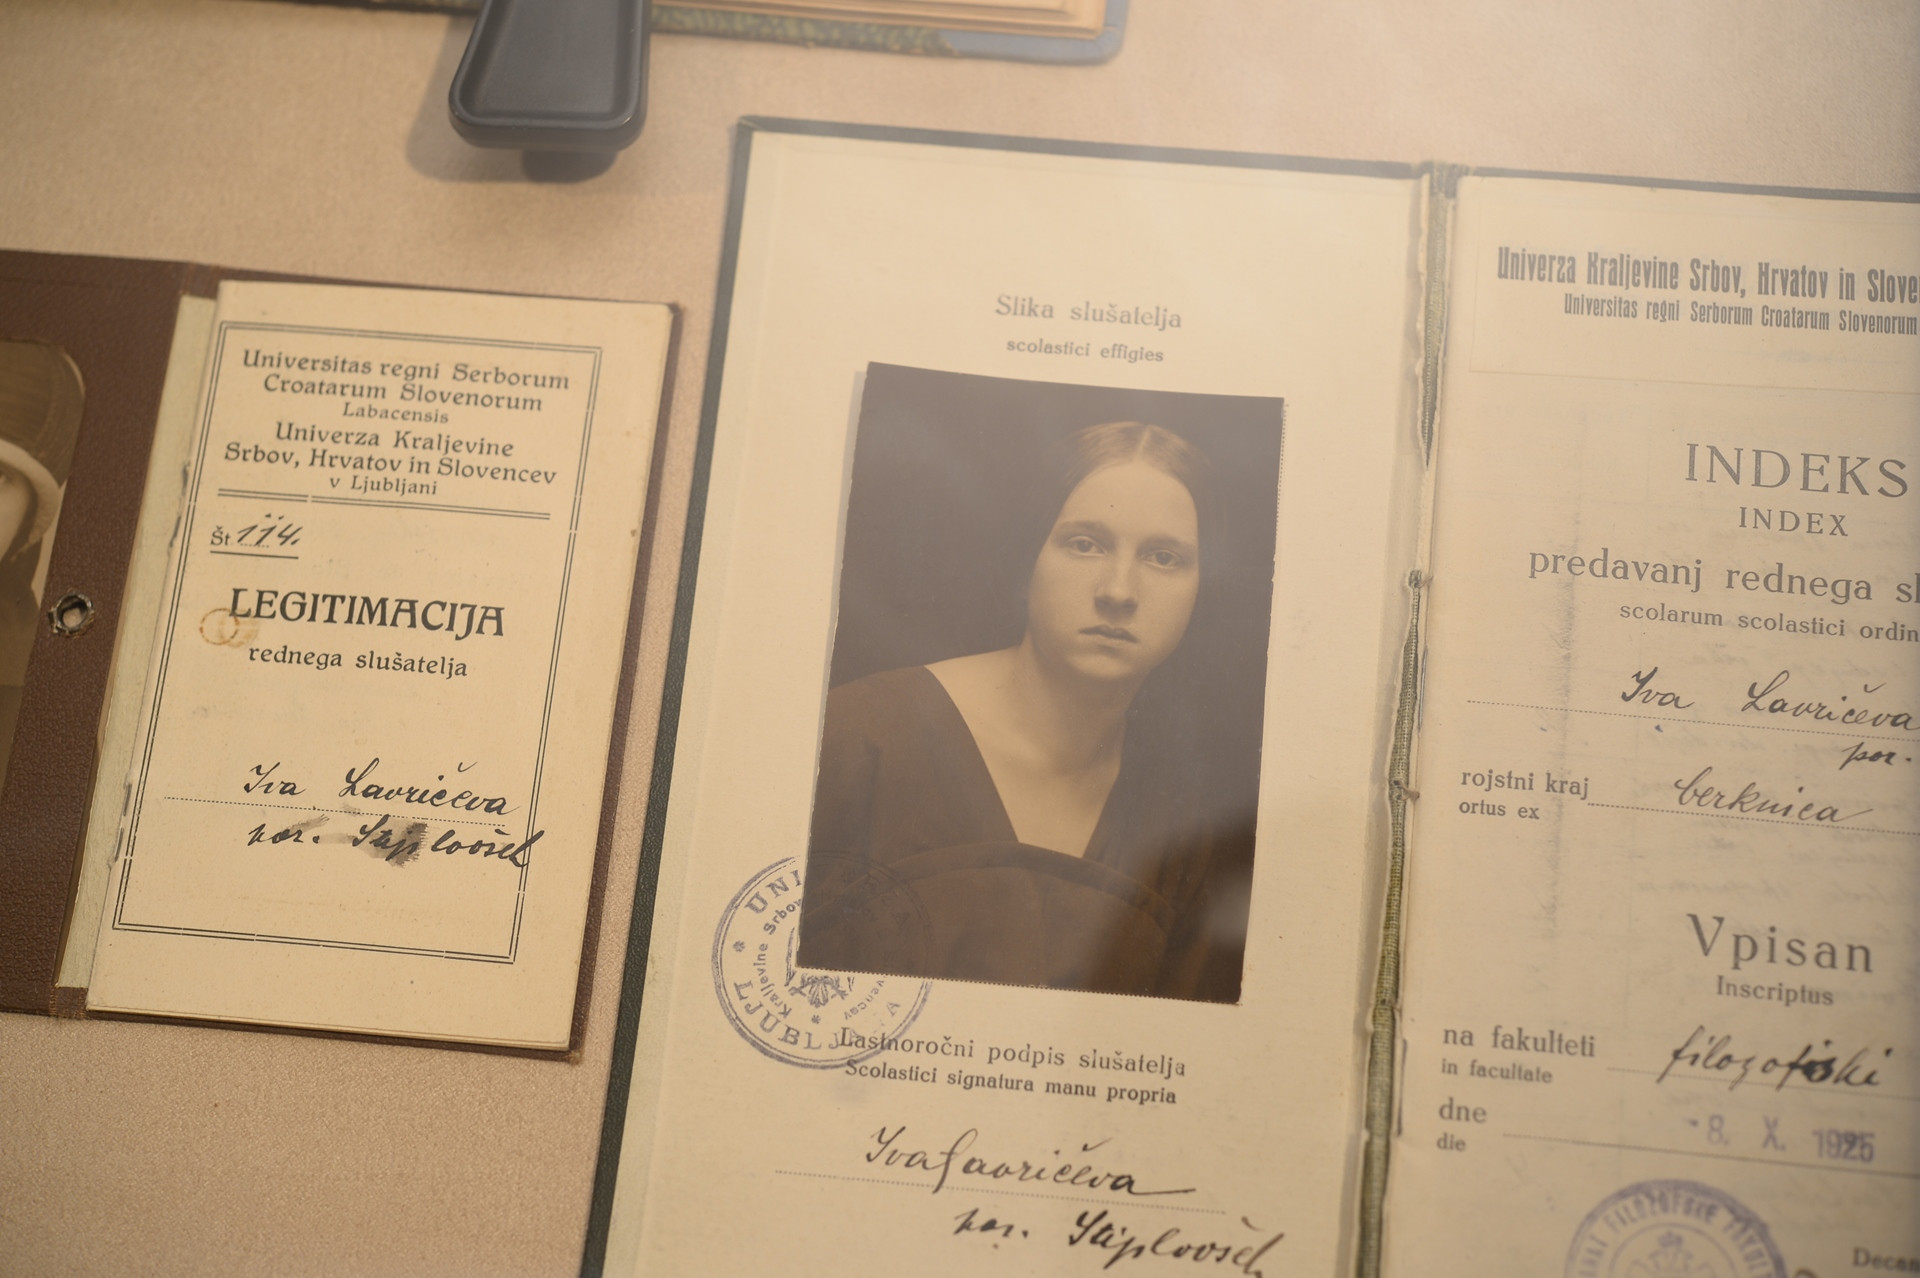 Universitas regni Serborum
Croatarum Slovenorum
Labacensis
Univerza Kraljevine
Srbov, Hrvatov in Slovencev
v Ljubljani
Št. 114.
LEGITIMACIJA
rednega slušatelja
Iva Lavričeva
por.
Slika slušatelja
scolastici effigies
Kraljevine Srbov
LJUBLJANA
Lastnoročni podpis slušatelja
Scolastici signatura manu propria
Iva Lavričeva
por.
Univerza Kraljevine Srbov, Hrvatov in Slove
Universitas regni Serborum Croatarum Slovenorum
INDEKS
INDEX
predavanj rednega sl
scolarum scolastici ordin
Iva Lavričeva
por.
rojstni kraj Cerknica
ortus ex
Vpisan
Inscriptus
na fakulteti filozofski
in facultate
dne - 8. X. 1925
die
Decan